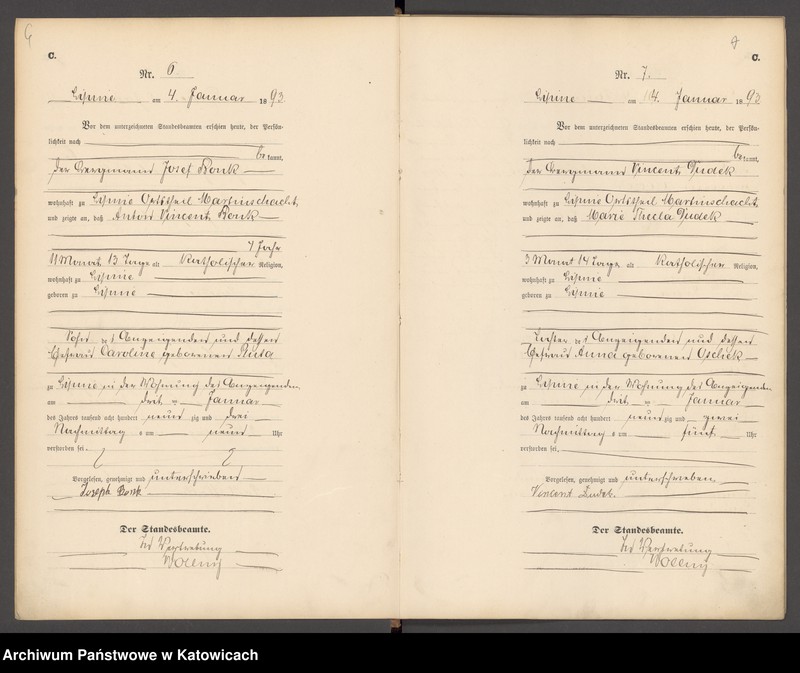 6
C.
Nr. 6
Lipine am 4. Januar 1893
Vor dem unterzeichneten Standesbeamten erschien heute, der Persön-
lichkeit nach
be kannt,
der Bergmann Josef Konk
wohnhaft zu Lipine Ortstheil Martinschacht
und zeigte an, daß Anton Vincent Konk
1 Jahr
11 Monat 13 Tage alt katholischer Religion,
wohnhaft zu Lipine
geboren zu Lipine
Sohn des Anzeigenden und dessen
Ehefrau Caroline geborenen Ruta
zu Lipine in der Wohnung des Anzeigenden
am drit ten Januar
des Jahres tausend acht hundert neun zig und drei
Nachmittag s um neun Uhr
verstorben sei.
Vorgelesen, genehmigt und unterschrieben
Joseph Konk
Der Standesbeamte.
In Vertretung
Wolny
7
C.
Nr. 7.
Lipine am 4. Januar 1893
Vor dem unterzeichneten Standesbeamten erschien heute, der Persön-
lichkeit nach
be kannt,
der Bergmann Vincent Dudek
wohnhaft zu Lipine Ortstheil Martinschacht
und zeigte an, daß Marie Dudek
3 Monat 14 Tage alt katholischer Religion,
wohnhaft zu Lipine
geboren zu Lipine
Tochter des Anzeigenden und dessen
Ehefrau Anna geborenen Oschek
zu Lipine in der Wohnung des Anzeigenden
am drit ten Januar
des Jahres tausend acht hundert neun zig und
Nachmittag s um fünf Uhr
verstorben sei.
Vorgelesen, genehmigt und unterschrieben
Vincent Dudek
Der Standesbeamte.
In Vertretung
Wolny
Archiwum Państwowe w Katowicach